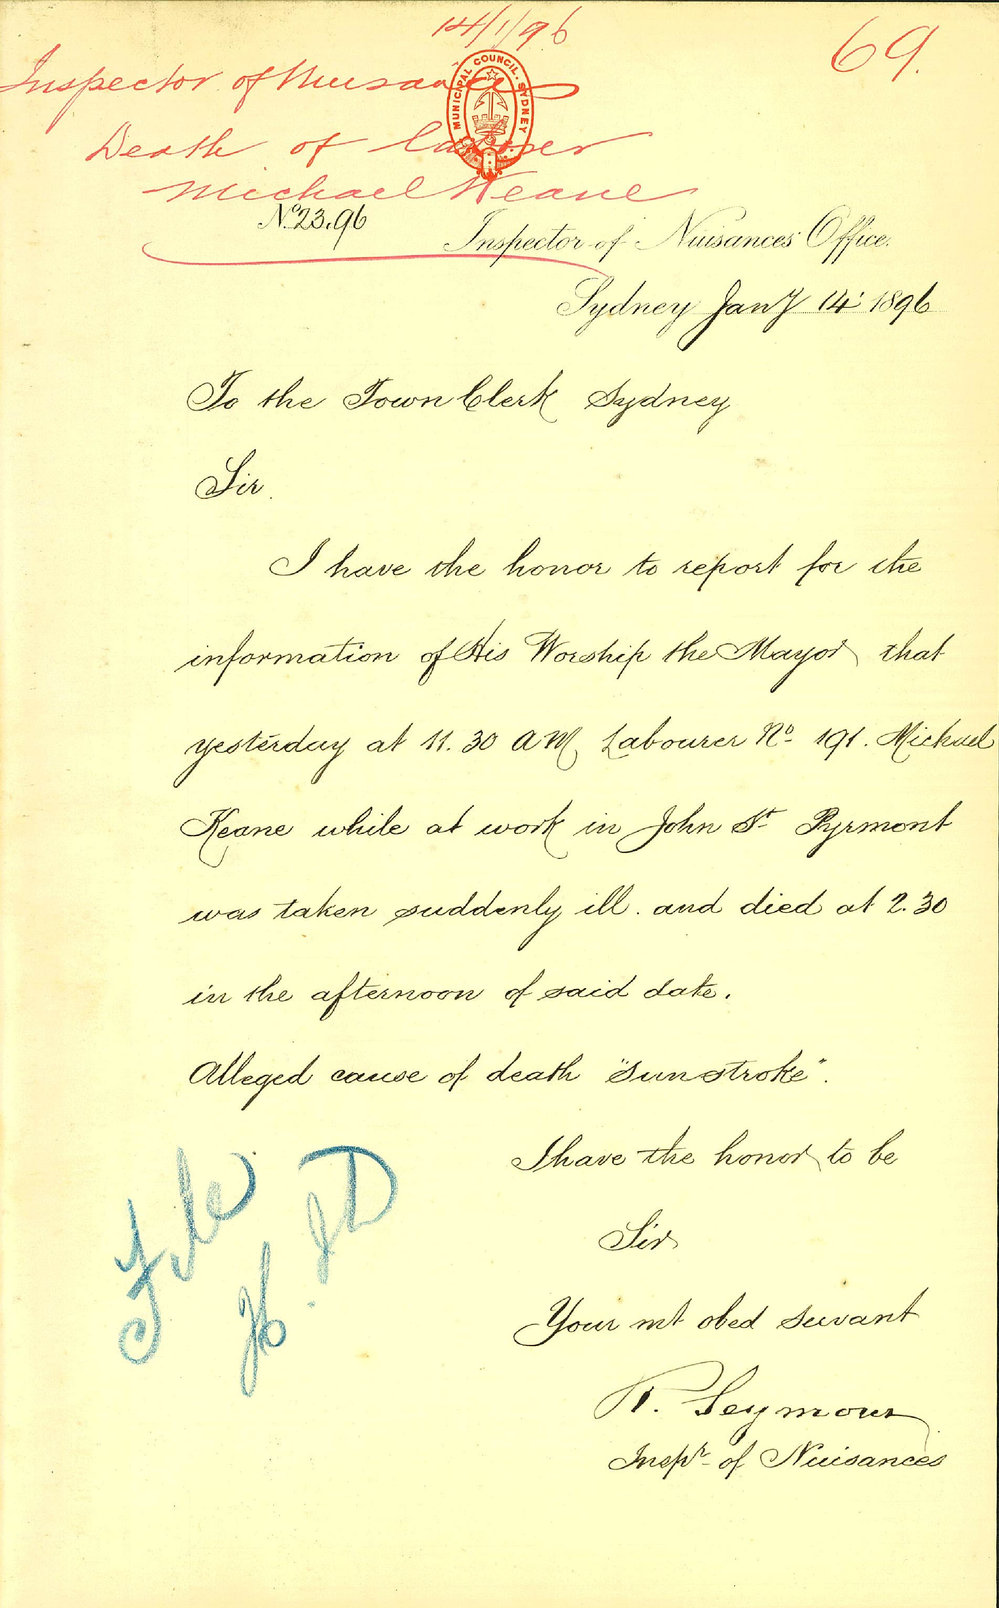 14/1/96
69.
Inspector of Nuisances
MUNICIPAL COUNCIL. SYDNEY
Death of Laborer
Michael Keane
No. 23.96
Inspector of Nuisances Office.
Sydney Jany 14 1896
To the Town Clerk Sydney
Sir.
I have the honor to report for the
information of His Worship the Mayor that
yesterday at 11.30 AM Labourer No 191. Michael
Keane while at work in John St Pyrmont
was taken suddenly ill. and died at 2.30
in the afternoon of said date.
Alleged cause of death "Sunstroke".
I have the honor to be
Sir
Your mt obed servant
R. Seymour
Inspr of Nuisances
File